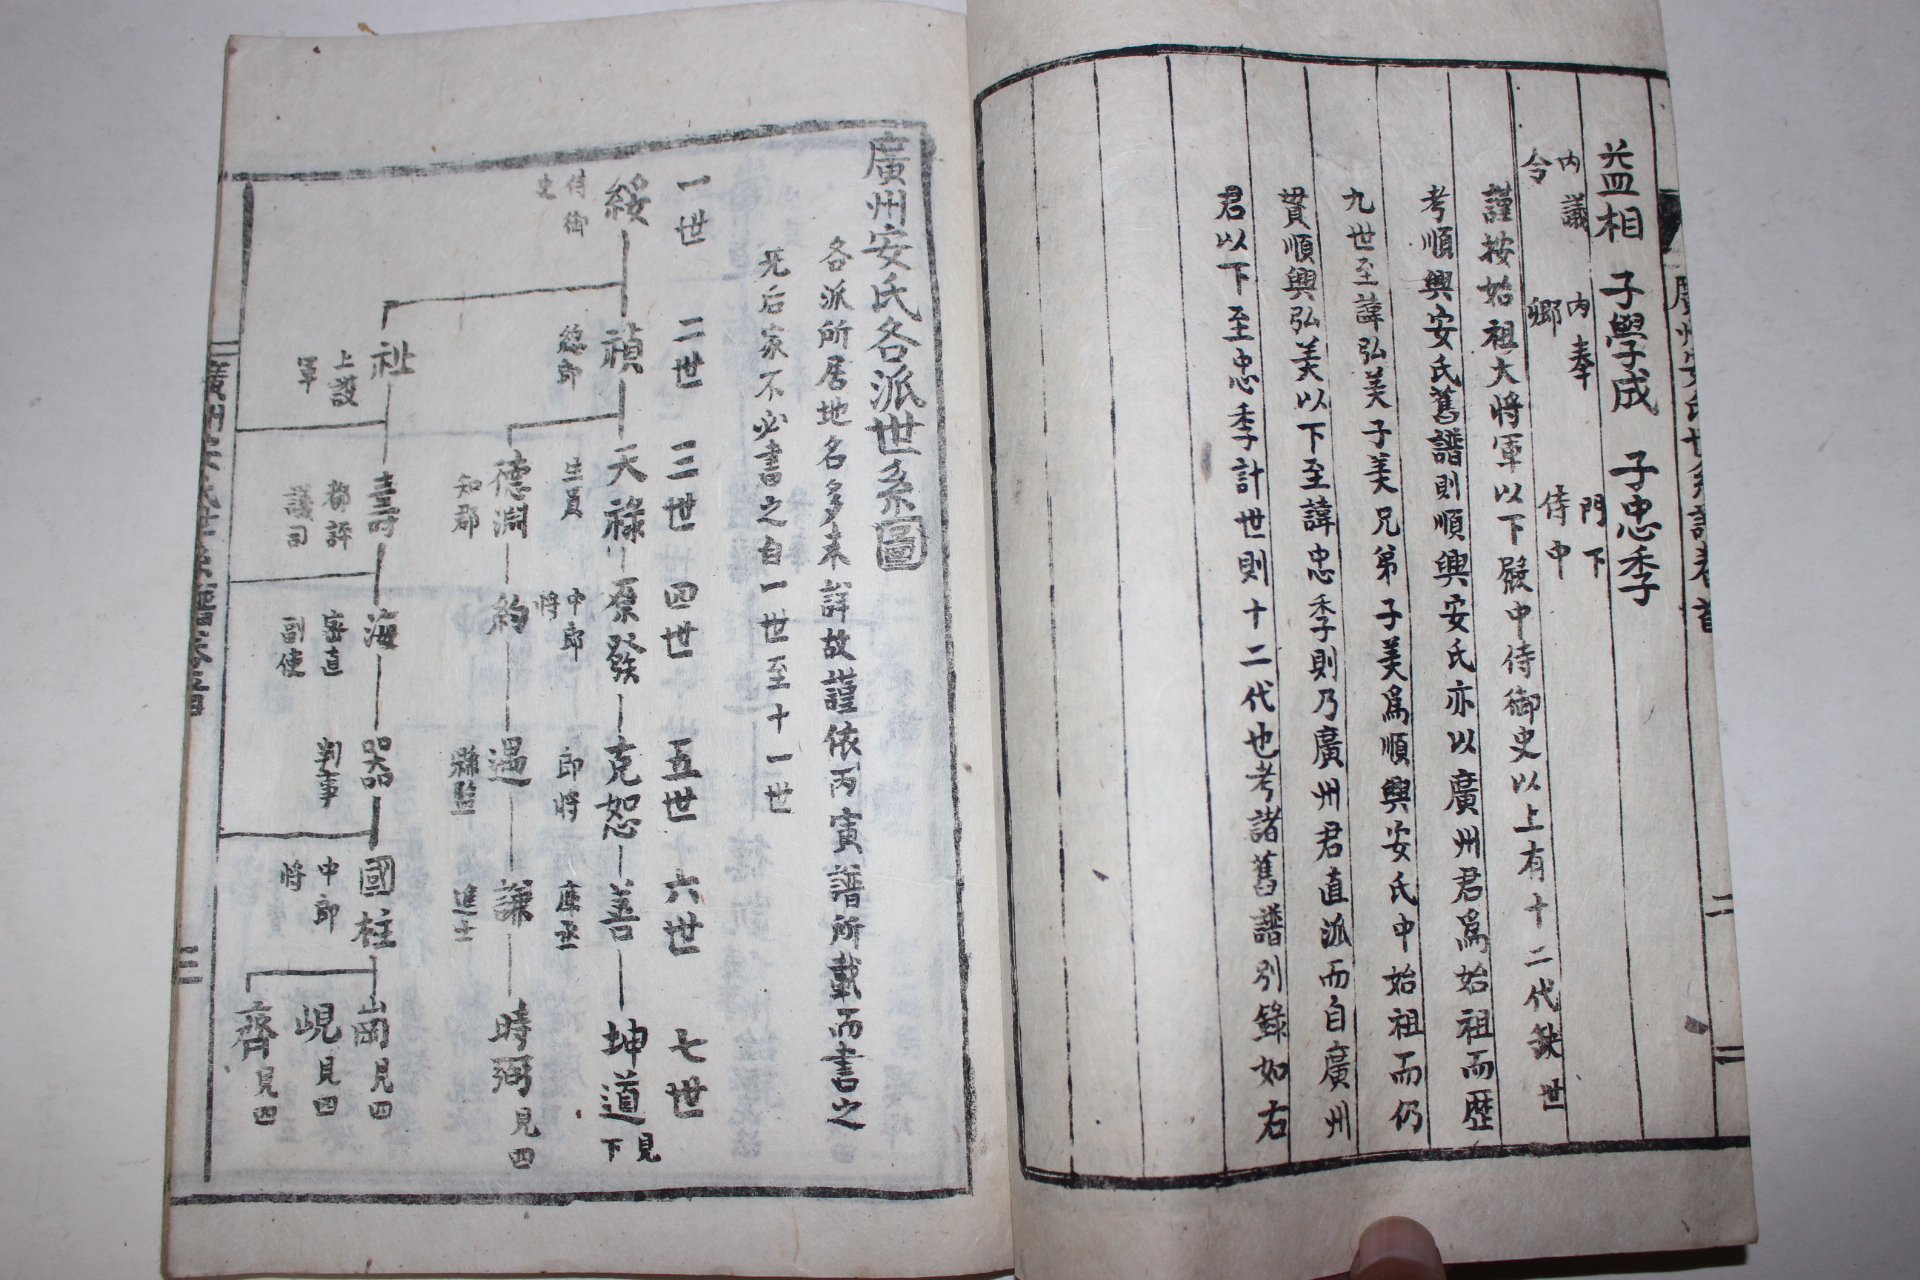 益相 子學成 子忠季
內議令 內奉卿 門下侍中
謹按始祖大將軍以下殿中侍御史以上有十二代缺世
考順興安氏舊譜則順興安氏亦以廣州君爲始祖而歷
九世至諱弘美子美兄弟子美爲順興安氏中始祖而仍
貫順興弘美以下至諱忠季則乃廣州君直派而自廣州
君以下至忠季計世則十二代也考諸舊譜別錄如右
二
廣州安氏各派世系圖
各派所居地名多未詳故謹依丙寅譜所載而書之
无后家不必書之自一世至十一世
一世 二世 三世 四世 五世 六世 七世
綏 禎 天祿 原發 克恕 善 坤道 見下
侍御史 生員 中郎將 郎將 庫丞
德淵 約 遇 謙 時弼 見四
知郡 縣監 進士
祉 壽 海 器 國柱 崗 見四
上護軍 都評議司 密直副使 判事 中郎將
峴 見四
齊 見四
三